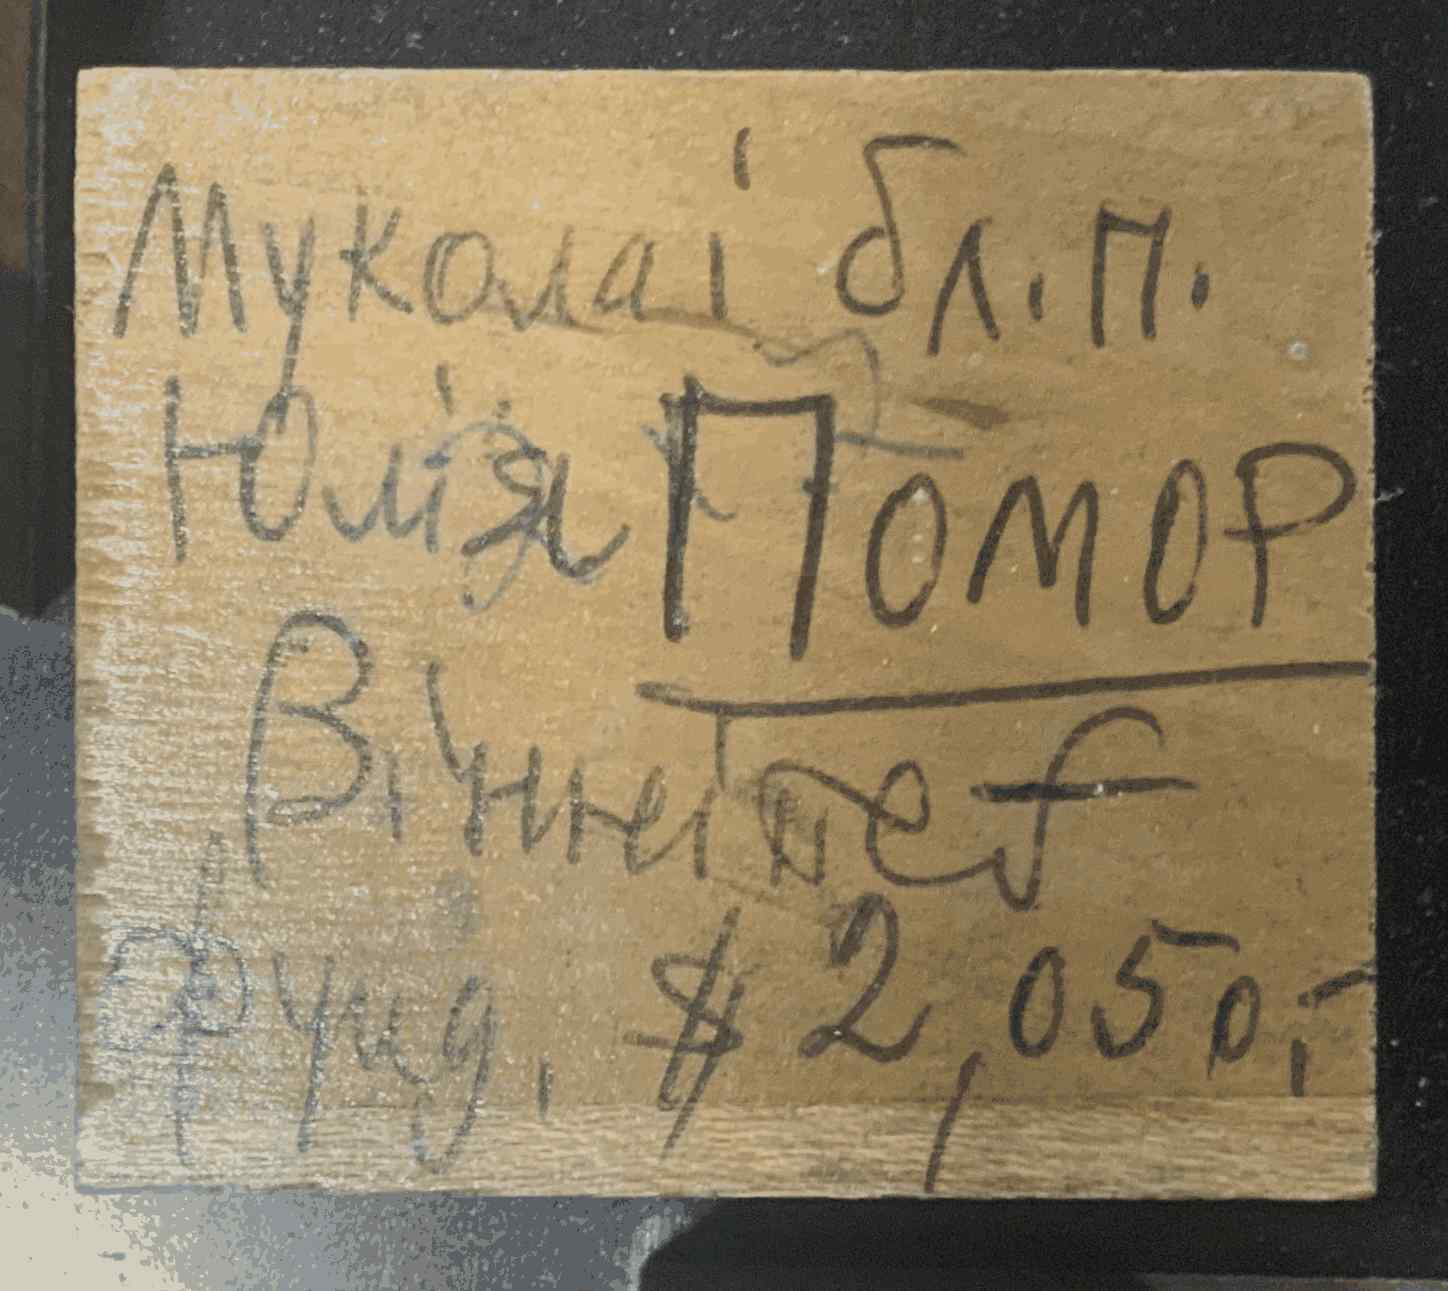 Муколаі бл. п.
Юлія Помор
Вінніпеґ
Фунд. $ 2,050,-